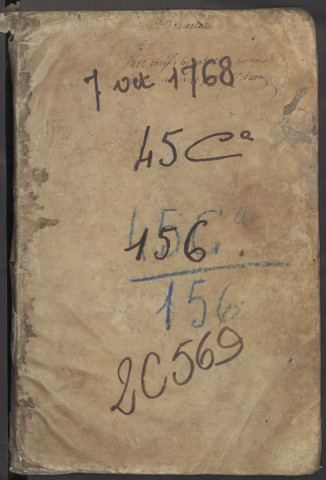 7 oct 1768
45 Ca
45Ca
156.
156
2C569